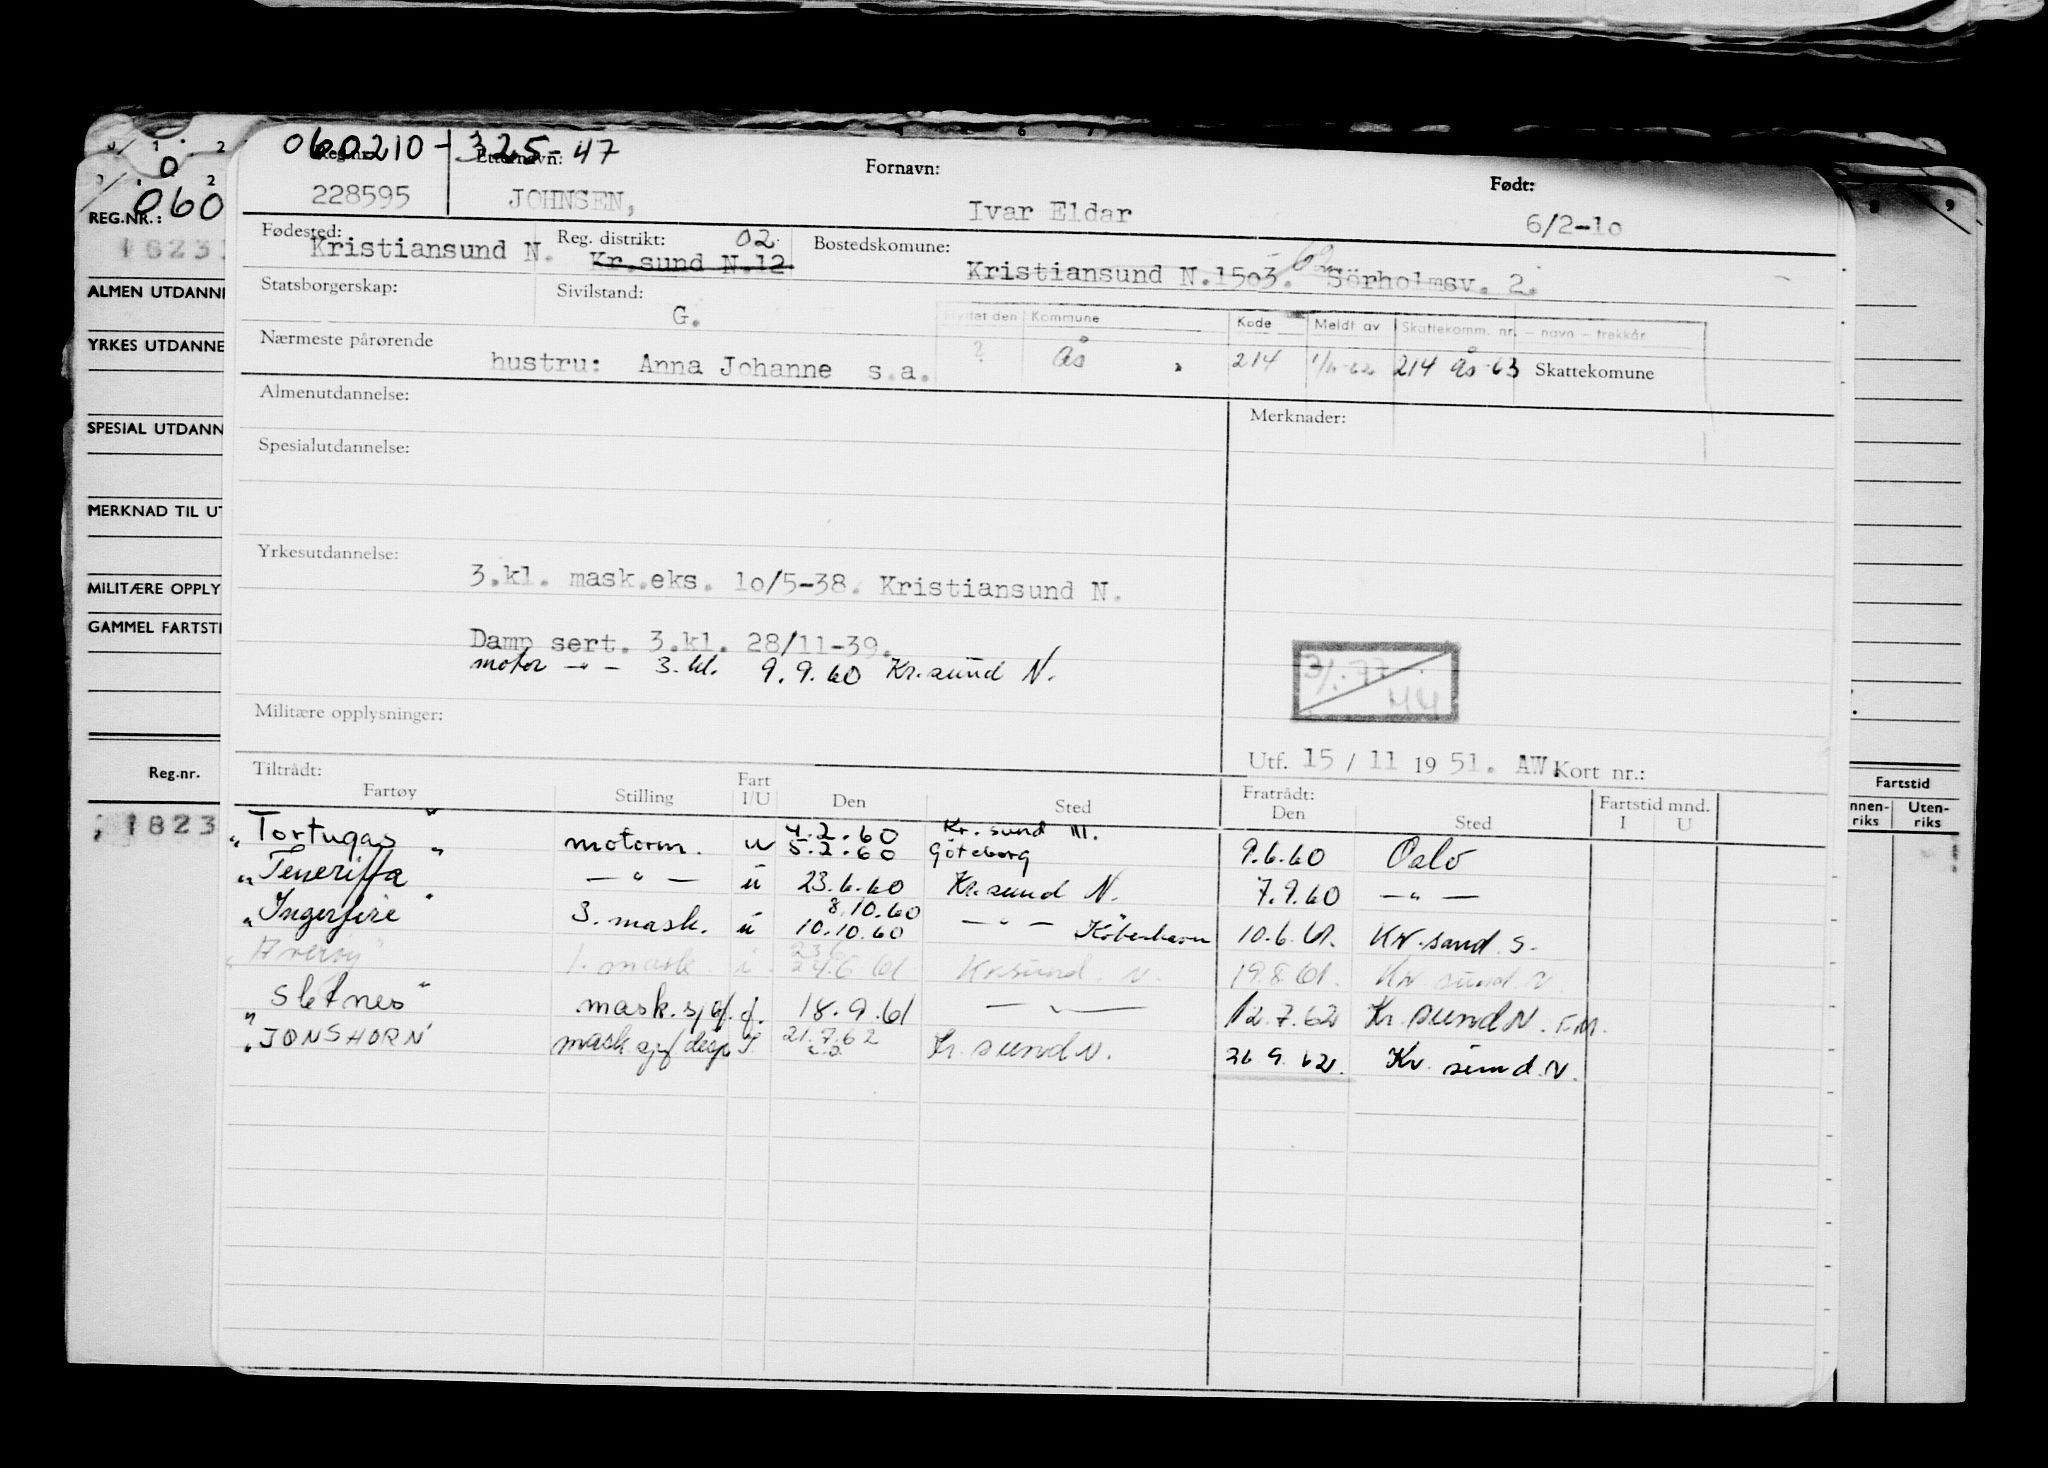 060210-325-47
Reg.nr.: Etternavn: Fornavn: Født:
228595 JOHNSEN, Ivar Eldar 6/2-lo
Fødested: Reg. distrikt: 02 Bostedskomune:
Kristiansund N. Kr.sund N.12. Kristiansund N.15o3. Sörholmsv. 2.
Statsborgerskap: Sivilstand:
G.
Flyttet den Kommune Kode Meldt av Skattekomm. nr. – navn – trekkår
Nærmeste pårørende ? Ås 214 214 Ås 63 Skattekomune
hustru: Anna Johanne s.a.
Almenutdannelse: Merknader:
Spesialutdannelse:
Yrkesutdannelse:
3.kl. mask.eks. lo/5-38. Kristiansund N.
Damp sert. 3.kl. 28/11-39.
motor -"- 3. kl. 9.9.60 Kr.sund N.
Militære opplysninger:
Utf. 15 / 11 19 51. AW. Kort nr.:
Tiltrådt: Fratrådt:
Fartøy Stilling Fart I/U Den Sted Den Sted Fartstid mnd. I U
4.2.60 Kr. sund N.
"Tortugas" motorm. u 5.2.60 Göteborg 9.6.60 Oslo
"Teneriffa" -"- u 23.6.60 Kr.sund N. 7.9.60 -"-
8.10.60
"Ingerfire" 3. mask. u 10.10.60 -"- Köbenhavn 10.6.61. Kr.sand.S.
23.6
"Averöy" 1. mask. i. 24.6.61 Kr.sund. N. 19.8.61. Kr sund. N
"Sletnes" mask.sjåf. i. 18.9.61 -"- 12.7.62 Kr. sund N. F.M.
"JONSHORN" mask sjåf desp I. 21.7.62 Kr. sund N. 26 9. 62. Kr. sund. N.
060
REG.NR.:
ALMEN UTDANNE
YRKES UTDANNE
SPESIAL UTDANN
MERKNAD TIL UT
MILITÆRE OPPLY
GAMMEL FARTSTI
Reg.nr.
1823
Fartstid
nnen-riks Uten-riks